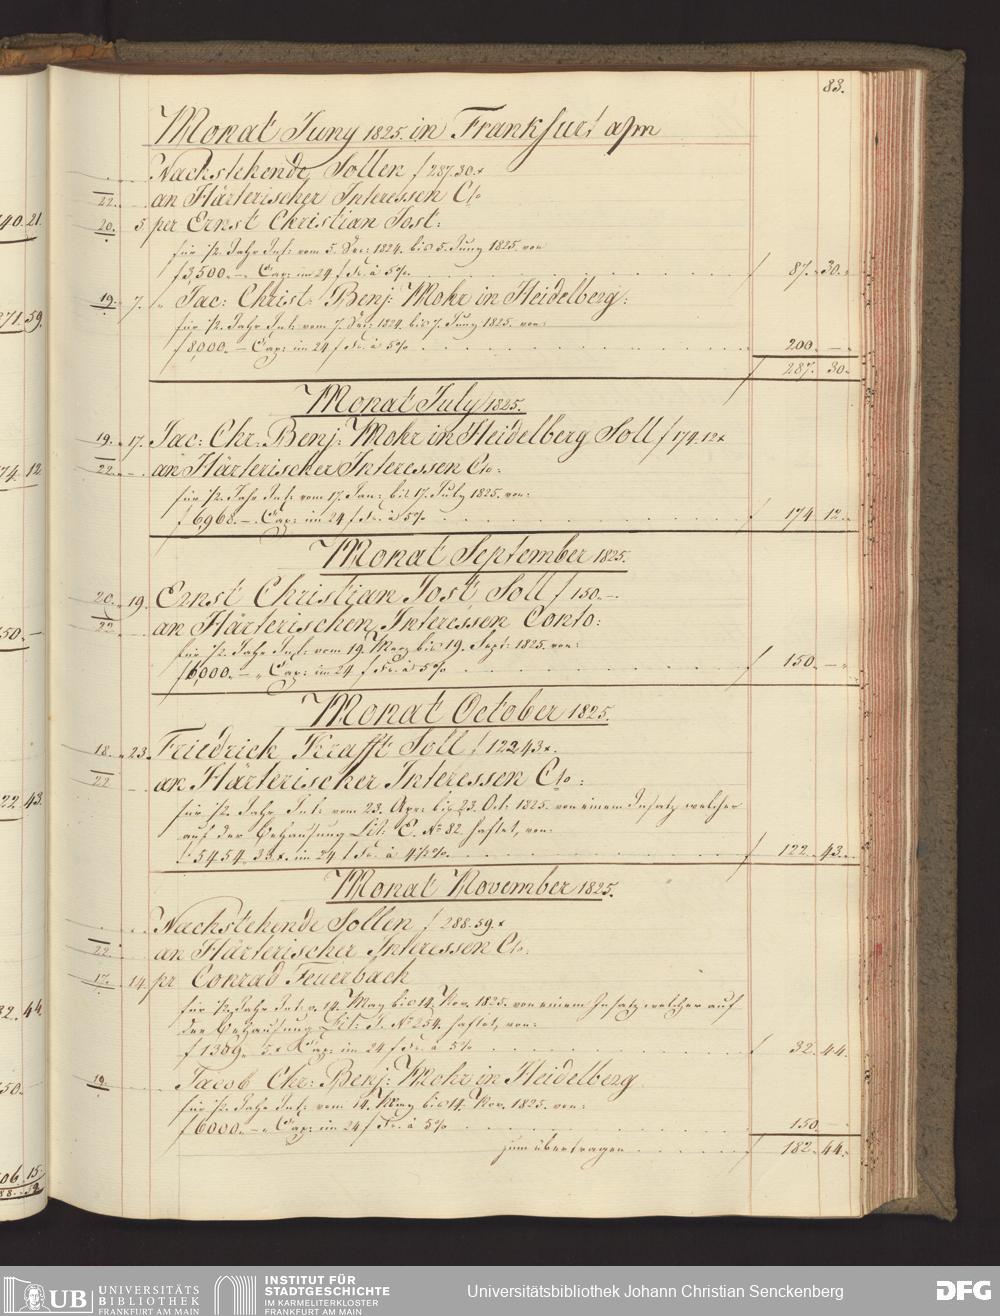 83.
Monat Juny 1825. in Frankfurt a/m
Nachstehende Sollen f 287.30.x
22. an Härterischer Interessen Cto
20. 5. per Ernst Christian Jost:
für ½ Jahr Int: vom 5. Dec: 1824. bis 5. Juny 1825. von
f 3,500.— Cap: im 24 f Fs. à 5% f 87. 30.
19. 7. „ Jac: Christ: Benj: Mohr in Heidelberg:
für ½ Jahr Int: vom 7. Dec: 1824. bis 7. Juny 1825. von:
f 8,000.— Cap: im 24 f Fs. à 5% 200. —
f 287. 30.
Monat July 1825.
19. 17. Jac: Chr: Benj: Mohr in Heidelberg Soll f 174.12x
22. an Härterischer Interessen Cto:
für ½ Jahr Int: vom 17. Jan: bis 17. July 1825. von:
f 6,968.— Cap: im 24 f Fs. à 5% f 174. 12.
Monat September 1825.
20. 19. Ernst Christian Jost Soll f 150.—.
22. an Härterischen Interessen Conto:
für ½ Jahr Int: vom 19. Merz bis 19. Sept: 1825. von:
f 6,000.— Cap: im 24 f Fs. à 5% f 150. —
Monat October 1825.
18. 23. Friedrick Krafft Soll f 122.43x.
22. an Härterischer Interessen Cto:
für ½ Jahr Int: vom 23. Apr: bis 23. Oct: 1825. von einem Insatz welcher
auf der Behausung Lit: E. No 82 haftet, von:
f 5454. 33x. im 24 f Fs. à 4½%. f 122. 43.
Monat November 1825.
Nachstehende Sollen f 288.59.x
22. an Härterischer Interessen Cto:
17. 14. pr Conrad Feuerbach
für ½ Jahr Int: v. 14. May bis 14. Nov. 1825. von einem Insatz welcher auf
der Behausung Lit: J. No 254. haftet, von:
f 1309. 5.x Cap: im 24 f Fs. à 5% f 32. 44.
19. Jacob Chr: Benj: Mohr in Heidelberg
für ½ Jahr Int: vom 14. May bis 14. Nov. 1825. von:
f 6000.— Cap: im 24 f Fs. à 5% 150. —
zum übertragen f 182. 44.
40. 21.
371. 59.
74. 12
150. —
22. 43.
32. 44.
50. —
06. 15.
UB UNIVERSITÄTS BIBLIOTHEK FRANKFURT AM MAIN
INSTITUT FÜR STADTGESCHICHTE IM KARMELITERKLOSTER FRANKFURT AM MAIN
Universitätsbibliothek Johann Christian Senckenberg
DFG